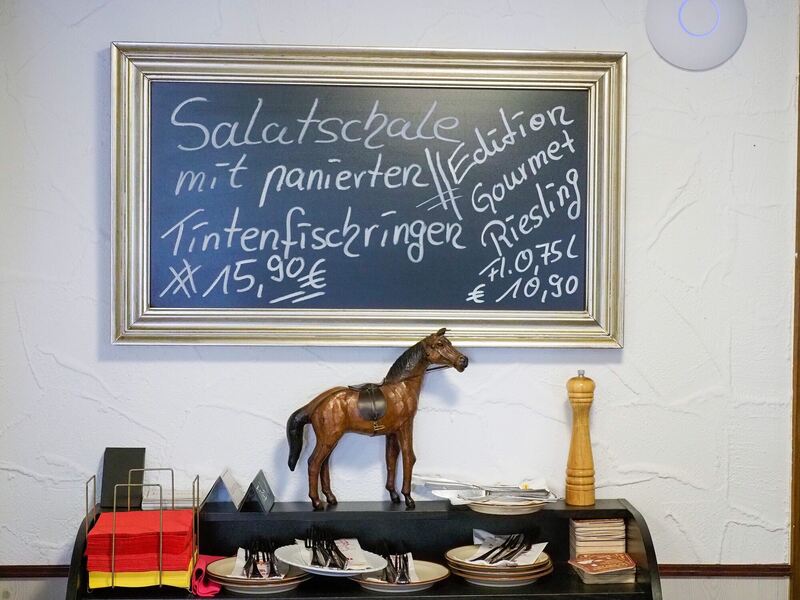 Salatschale
mit panierten
Tintenfischringen
15,90€
Edition
Gourmet
Riesling
Fl. 0,75L
€ 10,90